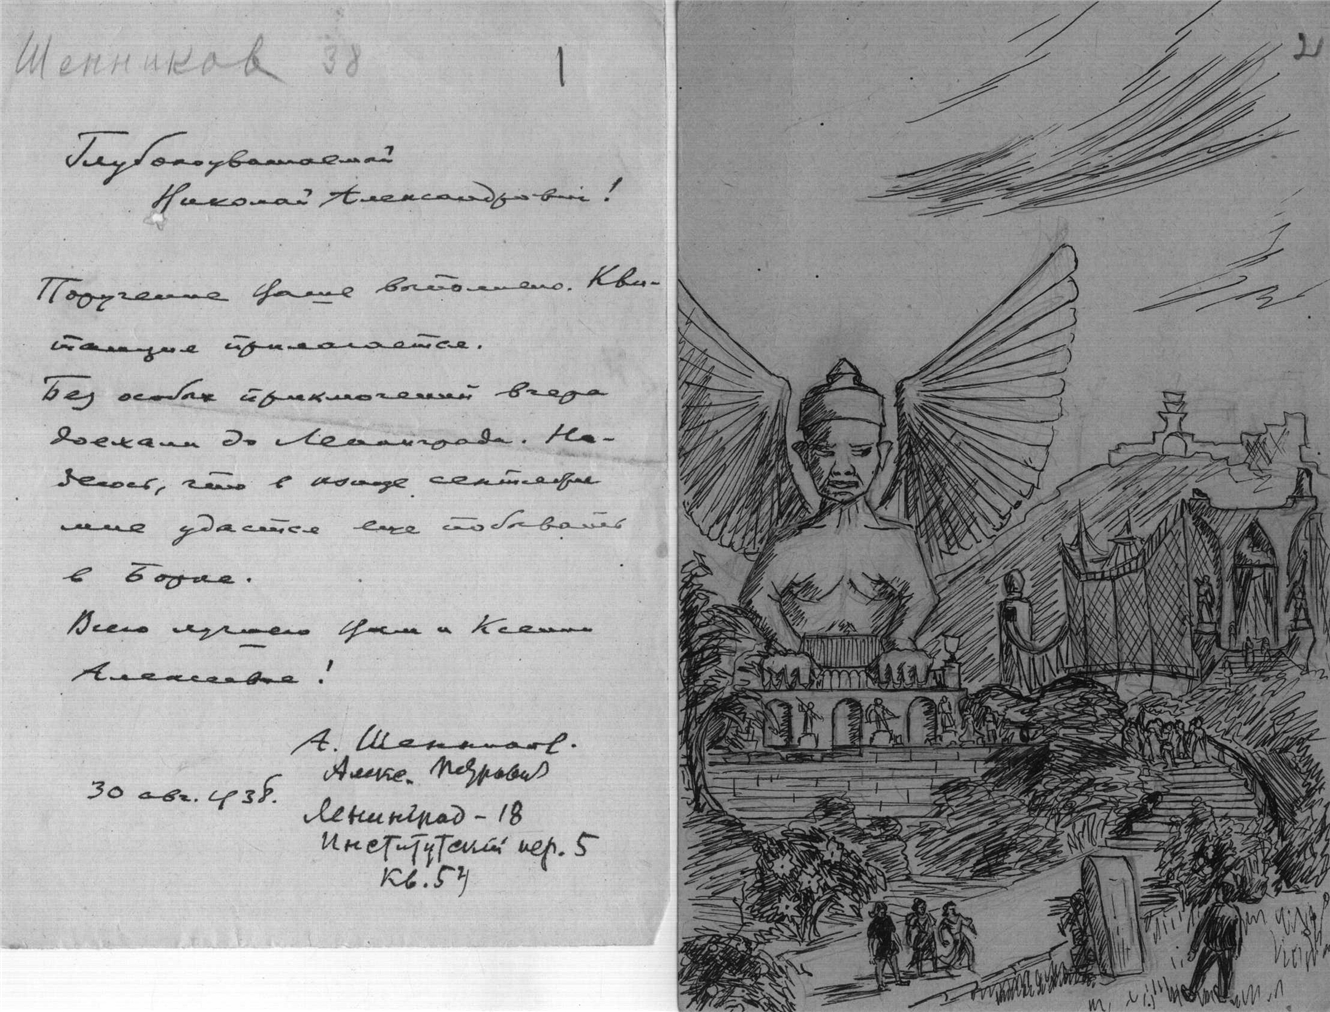 Шенников 38
1
Глубокоуважаемый
Николай Александрович!
Поручение Ваше выполнено. Кви-
танция прилагается.
Без особых приключений вчера
доехали до Ленинграда. На-
деюсь, что в конце сентября
мне удастся еще побывать
в Борке.
Всего лучшего Вам и Ксении
Алексеевне!
А. Шенников.
Алекс. Петрович
30 авг. 1938.
Ленинград - 18
Институтский пер. 5
Кв. 54
2